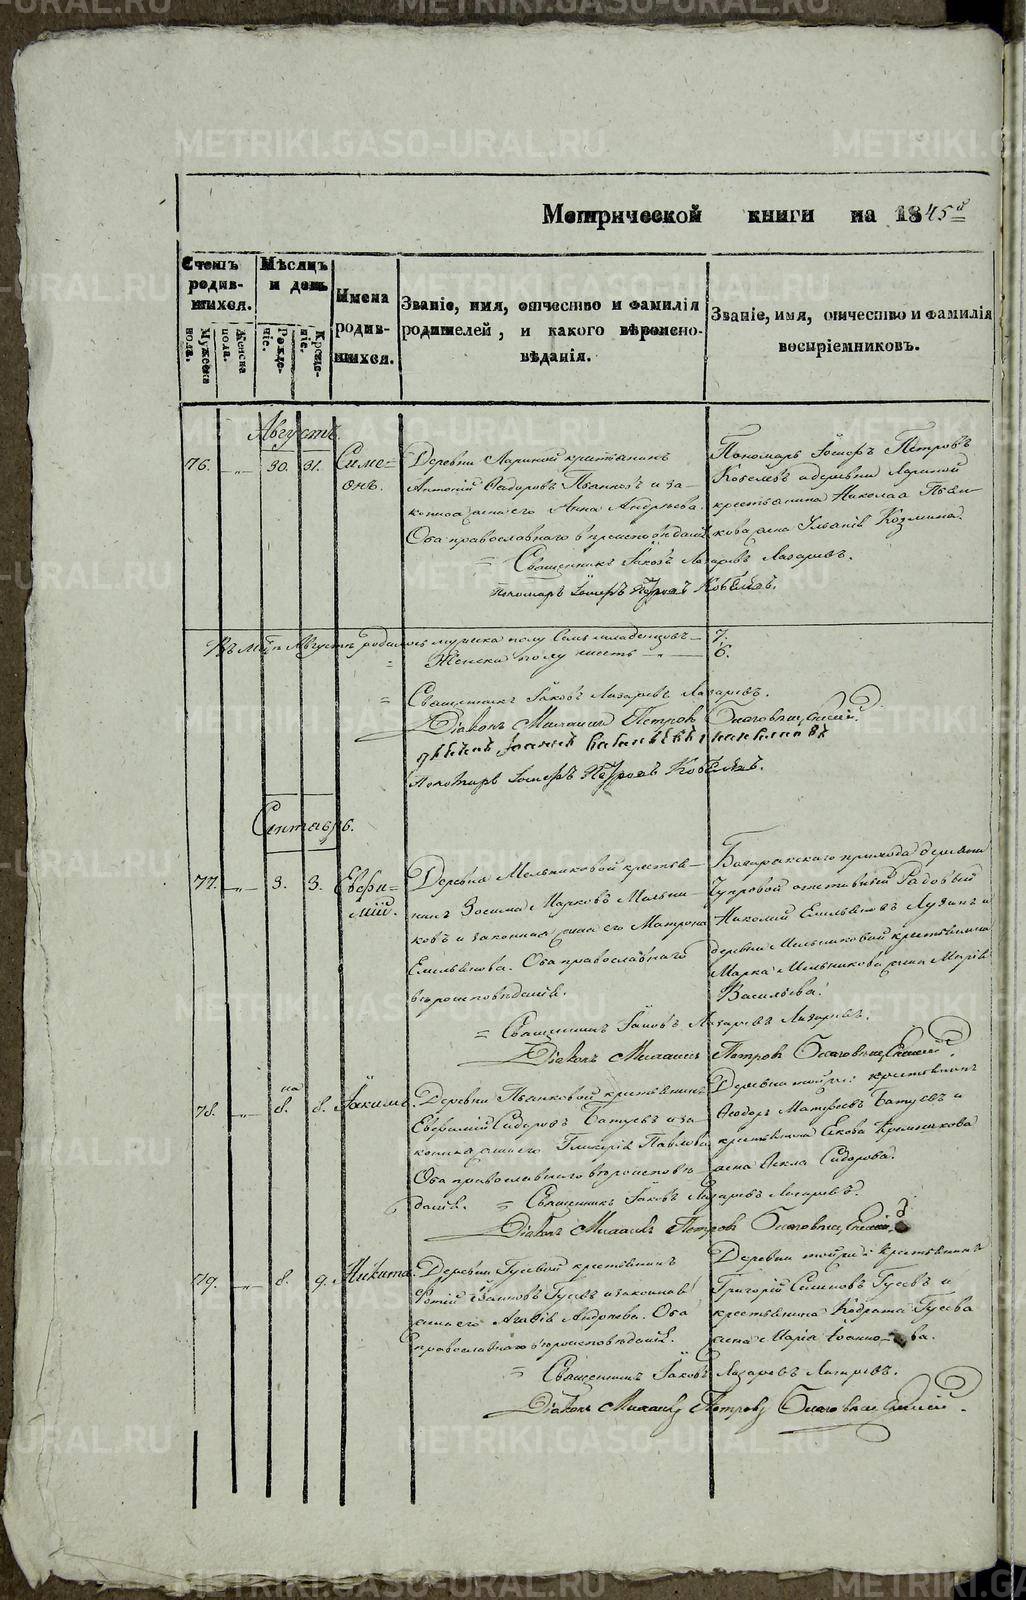 METRIKI.GASO-URAL.RU
Метрической книги на 1845й
Счетъ родив-шихся.
Мужеска пола.
Женска пола.
Мѣсяцъ и день
Рожде-нія.
Креще-нія.
Имена родив-шихся.
Званіе, имя, отчество и фамилія
родителей, и какого вѣроиспо-
вѣданія.
Званіе, имя, отчество и фамилія
воспріемниковъ.
Августъ.
76. 30. 31. Симе=
онъ.
Деревни Лариной крестьянинъ
Антоній Сидоровъ Пьянковъ и за-
конная жена его Анна Андреева.
Оба православнаго вѣроисповѣданія.
Пономарь Іосифъ Петровъ
Кобелевъ и деревни Лариной
крестьянина Николая Пьян-
кова жена Козмина.
= Священникъ Іаковъ Лазаревъ Лазаревъ.
Пономарь Іосифъ Петровъ Кобелевъ.
Въ Августѣ родилось мужеска полу семь младенцовъ — 7.
= Женска полу шесть — 6.
= Священникъ Іаковъ Лазаревъ Лазаревъ.
Діаконъ Михаилъ Петровъ Благовѣщенскій.
Пономарь Іосифъ Петровъ Кобелевъ.
Сентябрь.
77. 3. 3. Евфи=
мій.
Деревни Мельниковой крестья-
нинъ Зосима Марковъ Мельни-
ковъ и законная жена его Матрона
Емельянова. Оба православнаго
вѣроисповѣданія.
Багарякскаго прихода деревни
Чупровой отставный Рядовый
Николай Емельяновъ Лузинъ и
деревни Мельниковой крестьянина
Марка Мельникова жена Марія
Васильева.
= Священникъ Іаковъ Лазаревъ Лазаревъ.
Діаконъ Михаилъ Петровъ Благовѣщенскій.
78. на 8. 8. Іакимъ.
Деревни Пьянковой крестьянинъ
Евфимій Сидоровъ Батуевъ и за-
конная жена его Гликерія Павлова
Оба православнаго вѣроисповѣ-
данія.
Деревни тойже крестьянинъ
Ѳеодоръ Матѳеевъ Батуевъ и
крестьянина
жена Ѳекла Сидорова.
= Священникъ Іаковъ Лазаревъ Лазаревъ.
Діаконъ Михаилъ Петровъ Благовѣщенскій.
79. 8. 9. Никита.
Деревни Гусевой крестьянинъ
Фотій Гусевъ и законная
жена его Агафія Андреева. Оба
православнаго вѣроисповѣданія.
Деревни тойже крестьянинъ
Григорій Семеновъ Гусевъ и
крестьянина Кодрата Гусева
жена Марія Іоанно-ва.
= Священникъ Іаковъ Лазаревъ Лазаревъ.
Діаконъ Михаилъ Петровъ Благовѣщенскій.